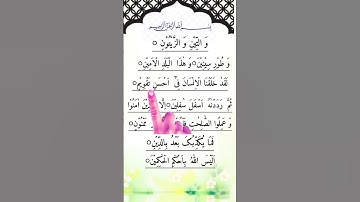 بِسْمِ اللّٰهِ الرَّحْمٰنِ الرَّحِيْمِ
وَ التِّيْنِ وَ الزَّيْتُوْنِ ۝
وَ طُوْرِ سِيْنِيْنَ ۝ وَ هٰذَا الْبَلَدِ الْاَمِيْنِ ۝
لَقَدْ خَلَقْنَا الْاِنْسَانَ فِيْۤ اَحْسَنِ تَقْوِيْمٍ ۝
ثُمَّ رَدَدْنٰهُ اَسْفَلَ سٰفِلِيْنَ ۝ اِلَّا الَّذِيْنَ اٰمَنُوْا
وَ عَمِلُوا الصّٰلِحٰتِ مَمْنُوْنٍ ۝
فَمَا يُكَذِّبُكَ بَعْدُ بِالدِّيْنِ ۝
اَلَيْسَ اللّٰهُ بِاَحْكَمِ الْحٰكِمِيْنَ ۝